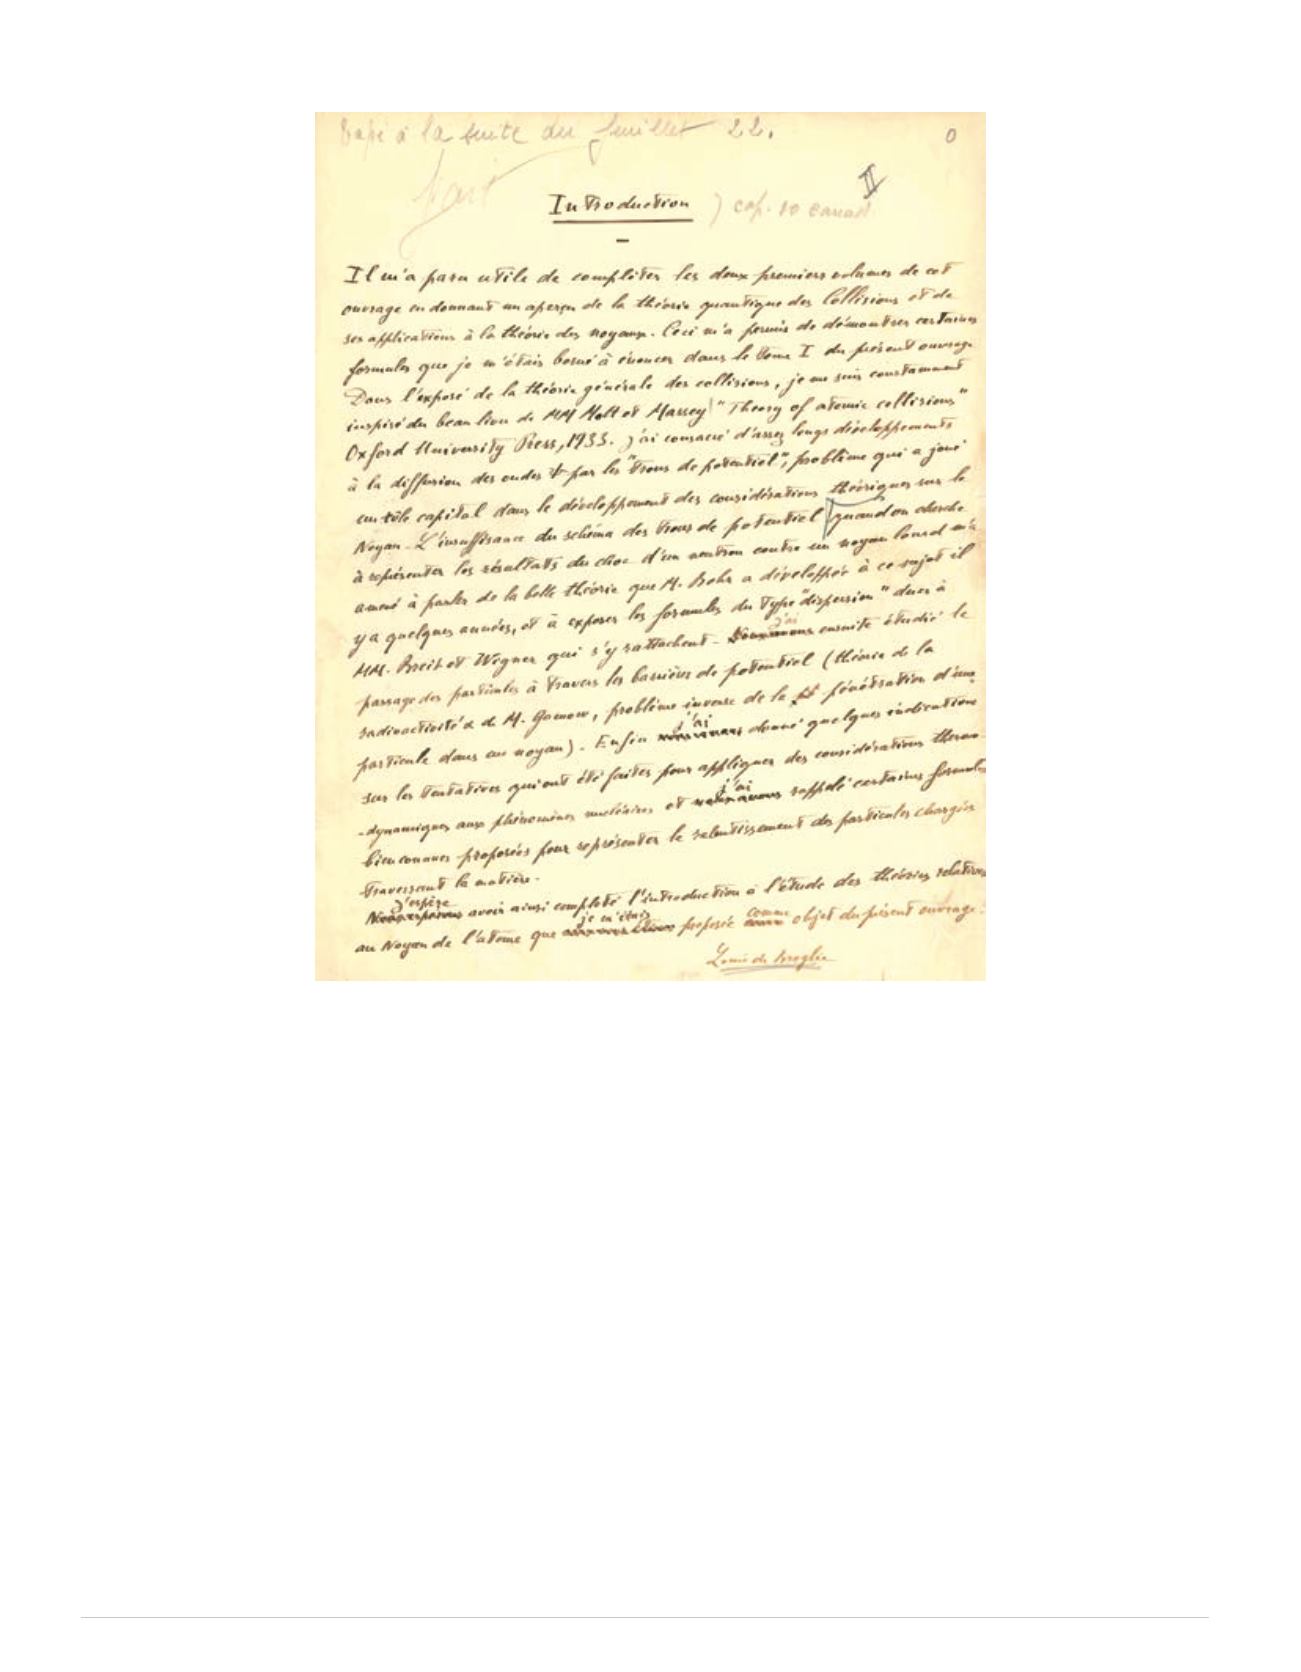 à la suite du feuillet 22.
0
II
Introduction ) cap. 10
Il m'a paru utile de compléter les deux premiers volumes de cet
ouvrage en donnant un aperçu de la théorie quantique des Collisions et de
ses applications à la théorie des noyaux. Ceci m'a permis de démontrer certaines
formules que je m'étais borné à énoncer dans le tome I du présent ouvrage
Dans l'exposé de la théorie générale des collisions, je me suis constamment
inspiré du beau livre de MM Mott et Massey "Theory of atomic collisions"
Oxford University Press, 1933. J'ai consacré d'assez longs développements
à la diffusion des ondes ψ par les "trous de potentiel", problème qui a joué
un rôle capital dans le développement des considérations théoriques sur le
Noyau - L'insuffisance du schéma des trous de potentiel quand on cherche
à représenter les résultats du choc d'un neutron contre un noyau lourd m'a
amené à parler de la belle théorie que M. Bohr a développée à ce sujet il
y a quelques années, et à exposer les formules du type "dispersion" dues à
MM. Breit et Wigner qui s'y rattachent - Nous avons j'ai ensuite étudié le
passage des particules à travers les barrières de potentiel (théorie de la
radioactivité α de M. Gamow, problème inverse de la pénétration d'une
particule dans un noyau). Enfin nous avons j'ai donné quelques indications
sur les tentatives qui ont été faites pour appliquer des considérations thermo-
-dynamiques aux phénomènes nucléaires et nous avons j'ai rappelé certaines formules
bien connues proposées pour représenter le ralentissement des particules chargées
traversant la matière.
Nous espérons J'espère avoir ainsi complété l'introduction à l'étude des théories relatives
au Noyau de l'atome que nous nous étions je m'étais proposée comme objet du présent ouvrage.
Louis de Broglie